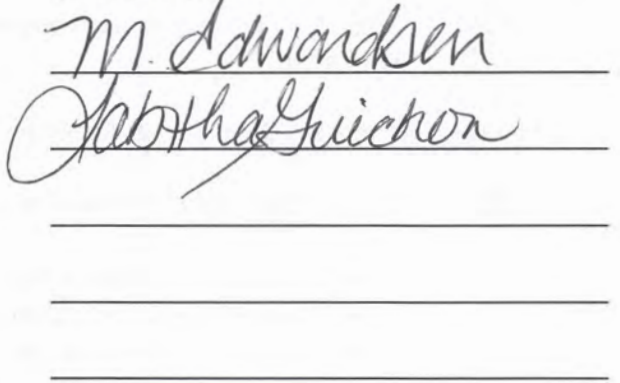 M. Edwardsen
Tabitha Guichon